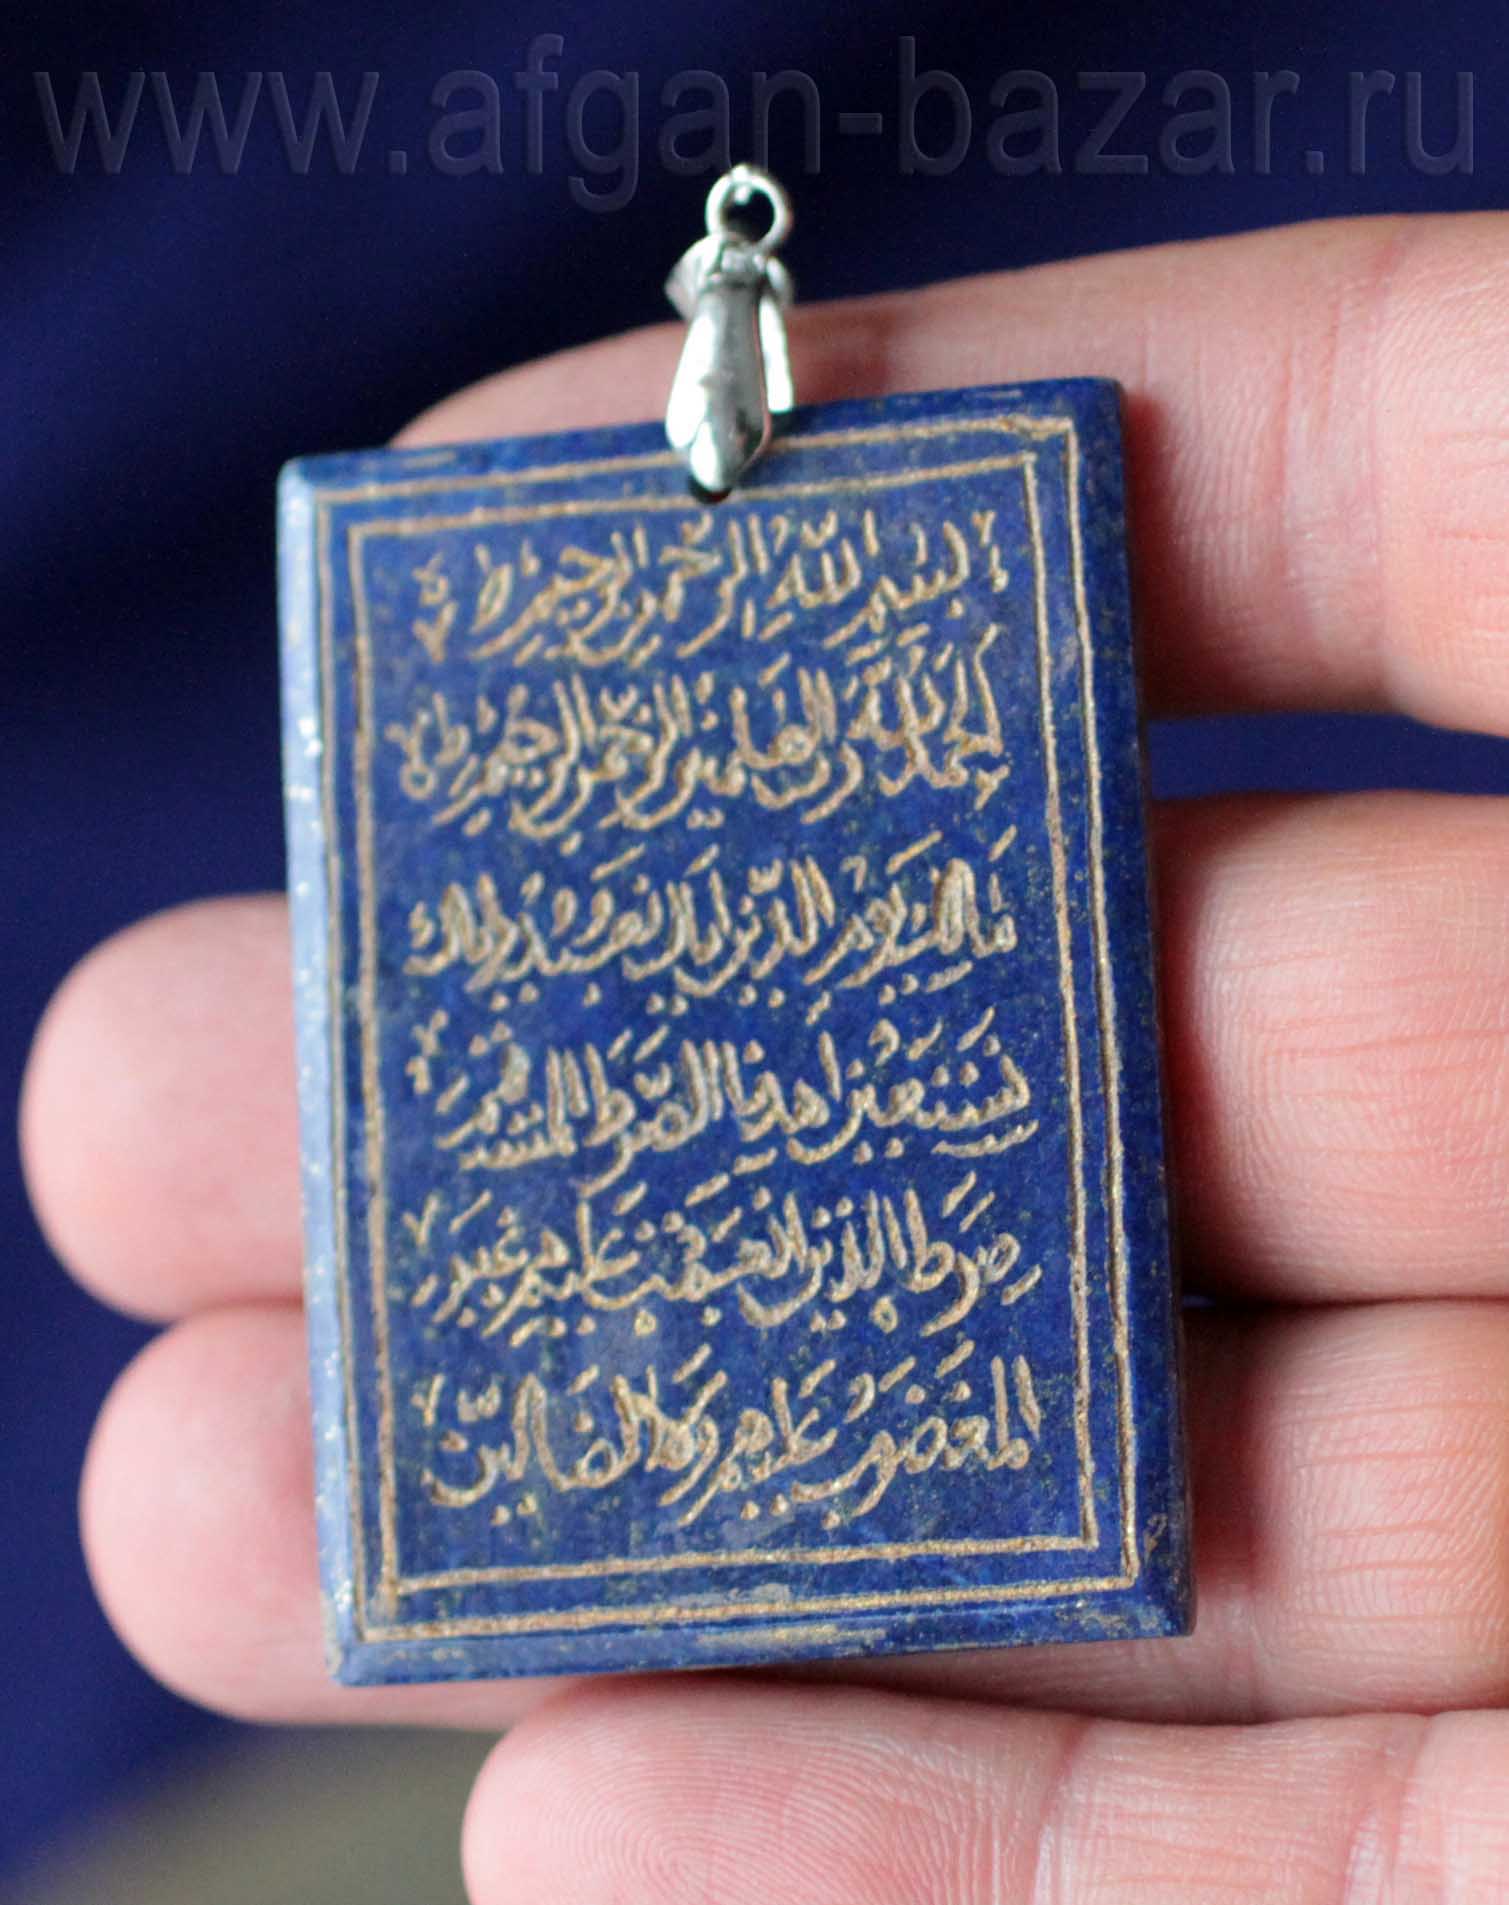 www.afgan-bazar.ru
بسم الله الرحمن الرحيم ط
الحمد لله رب العلمين الرحمن الرحيم ط
ملك يوم الدين اياك نعبد و اياك
نستعين اهدنا الصرط المستقيم
صرط الذين انعمت عليهم غير
المغضوب عليهم ولا الضالين